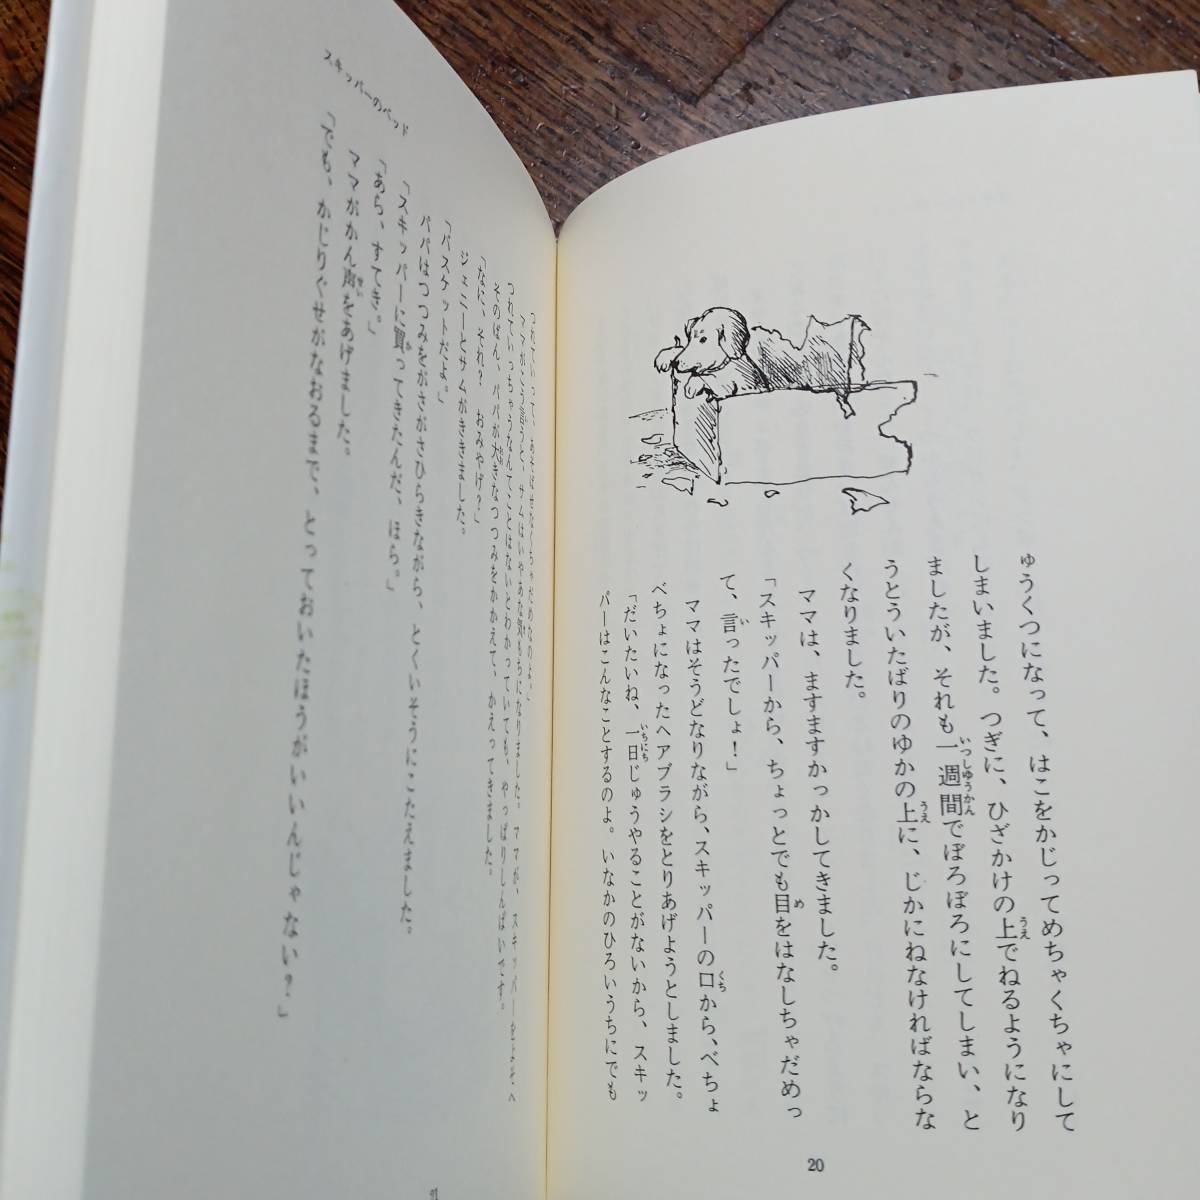 ゅうくつになって、はこをかじってめちゃくちゃにして
しまいました。つぎに、ひざかけの上でねるようになり
ましたが、それも一週間でぼろぼろにしてしまい、と
うとういたばりのゆかの上に、じかにねなければならな
くなりました。
ママは、ますますかっかしてきました。
「スキッパーから、ちょっとでも目をはなしちゃだめっ
て、言ったでしょ！」
ママはそうどなりながら、スキッパーの口から、べちょ
べちょになったヘアブラシをとりあげようとしました。
「だいたいね、一日じゅうやることがないから、スキッ
パーはこんなことするのよ。いなかのひろいうちにでも
20
スキッパーのベッド
つれていって、あそばせなくちゃだめなのよ。」
ママがこう言うと、サムはいやあな気もちになりました。ママが、スキッパーをよそへ
つれていっちゃうなんてことはないとわかっていても、やっぱりしんぱいです。
そのばん、パパが大きなつつみをかかえて、かえってきました。
「なに、それ？　おみやげ？」
ジェニーとサムがききました。
「バスケットだよ。」
パパはつつみをがさがさひらきながら、とくいそうにこたえました。
「スキッパーに買ってきたんだ、ほら。」
「あら、すてき。」
ママがかん声をあげました。
「でも、かじりぐせがなおるまで、とっておいたほうがいいんじゃない？」
21